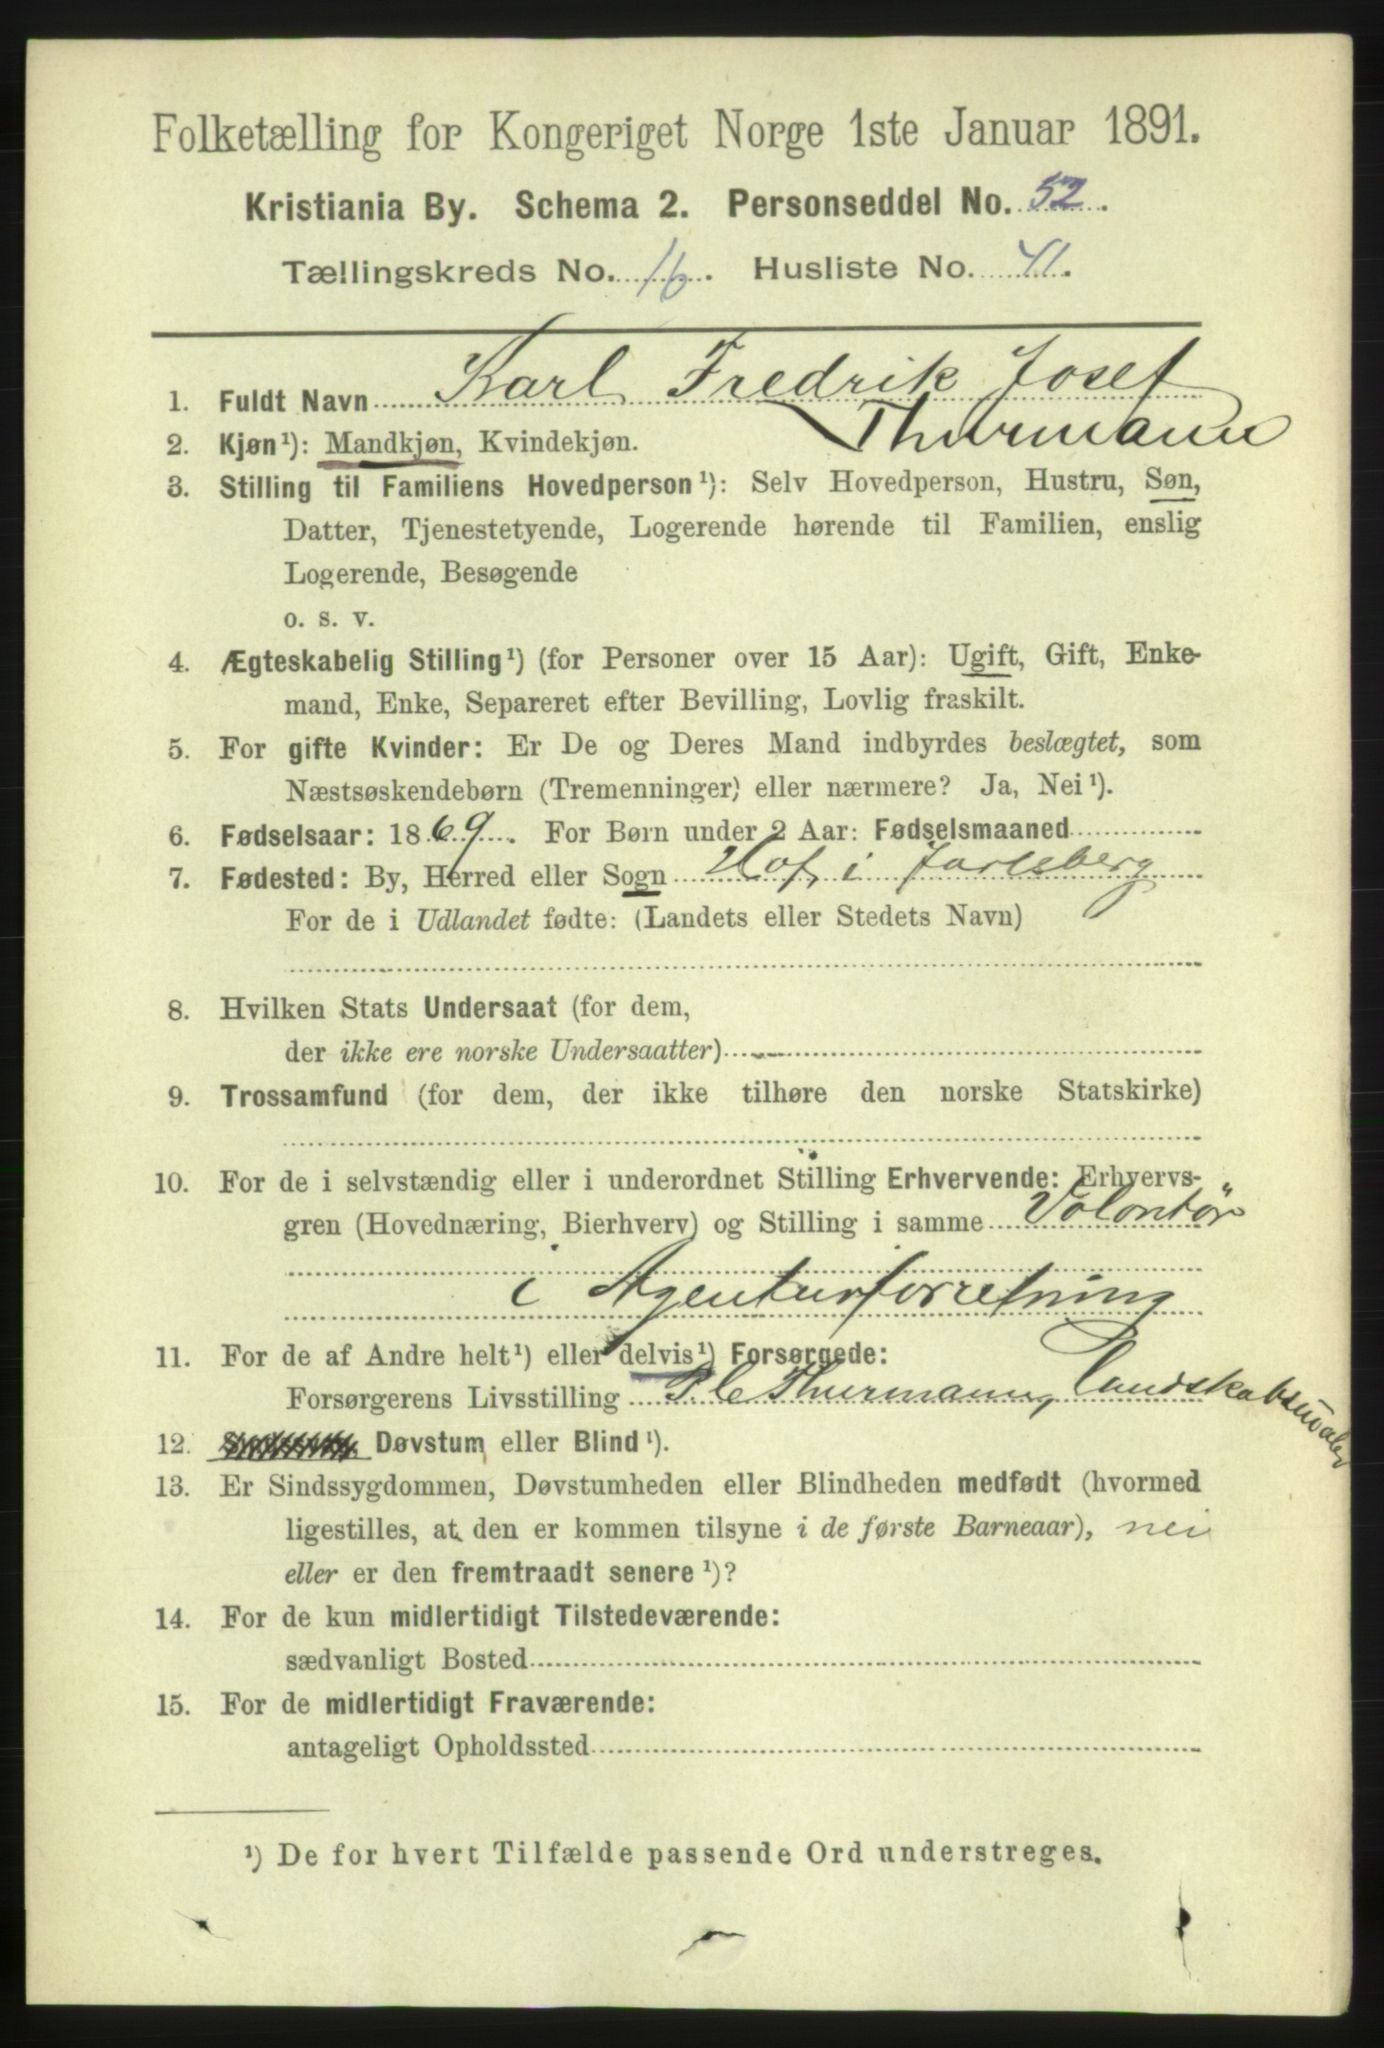 Folketælling for Kongeriget Norge 1ste Januar 1891.
Kristiania By. Schema 2. Personseddel No. 52.
Tællingskreds No. 16. Husliste No. 41.
1. Fuldt Navn Karl Fredrik Josef
Thurmann
2. Kjøn¹): Mandkjøn, Kvindekjøn.
3. Stilling til Familiens Hovedperson¹): Selv Hovedperson, Hustru, Søn,
Datter, Tjenestetyende, Logerende hørende til Familien, enslig
Logerende, Besøgende
o. s. v.
4. Ægteskabelig Stilling¹) (for Personer over 15 Aar): Ugift, Gift, Enke-
mand, Enke, Separeret efter Bevilling, Lovlig fraskilt.
5. For gifte Kvinder: Er De og Deres Mand indbyrdes beslægtet, som
Næstsøskendebørn (Tremenninger) eller nærmere? Ja, Nei¹).
6. Fødselsaar: 1869. For Børn under 2 Aar: Fødselsmaaned
7. Fødested: By, Herred eller Sogn Hof i Jarlsberg
For de i Udlandet fødte: (Landets eller Stedets Navn)
8. Hvilken Stats Undersaat (for dem,
der ikke ere norske Undersaatter)
9. Trossamfund (for dem, der ikke tilhøre den norske Statskirke)
10. For de i selvstændig eller i underordnet Stilling Erhvervende: Erhvervs-
gren (Hovednæring, Bierhverv) og Stilling i samme Volontør
i Agenturforretning
11. For de af Andre helt¹) eller delvis¹) Forsørgede:
Forsørgerens Livsstilling P. C Thurmann, Landskabsmaler
12. Døvstum eller Blind¹).
13. Er Sindssygdommen, Døvstumheden eller Blindheden medfødt (hvormed
ligestilles, at den er kommen tilsyne i de første Barneaar), nei
eller er den fremtraadt senere¹)?
14. For de kun midlertidigt Tilstedeværende:
sædvanligt Bosted
15. For de midlertidigt Fraværende:
antageligt Opholdssted
¹) De for hvert Tilfælde passende Ord understreges.